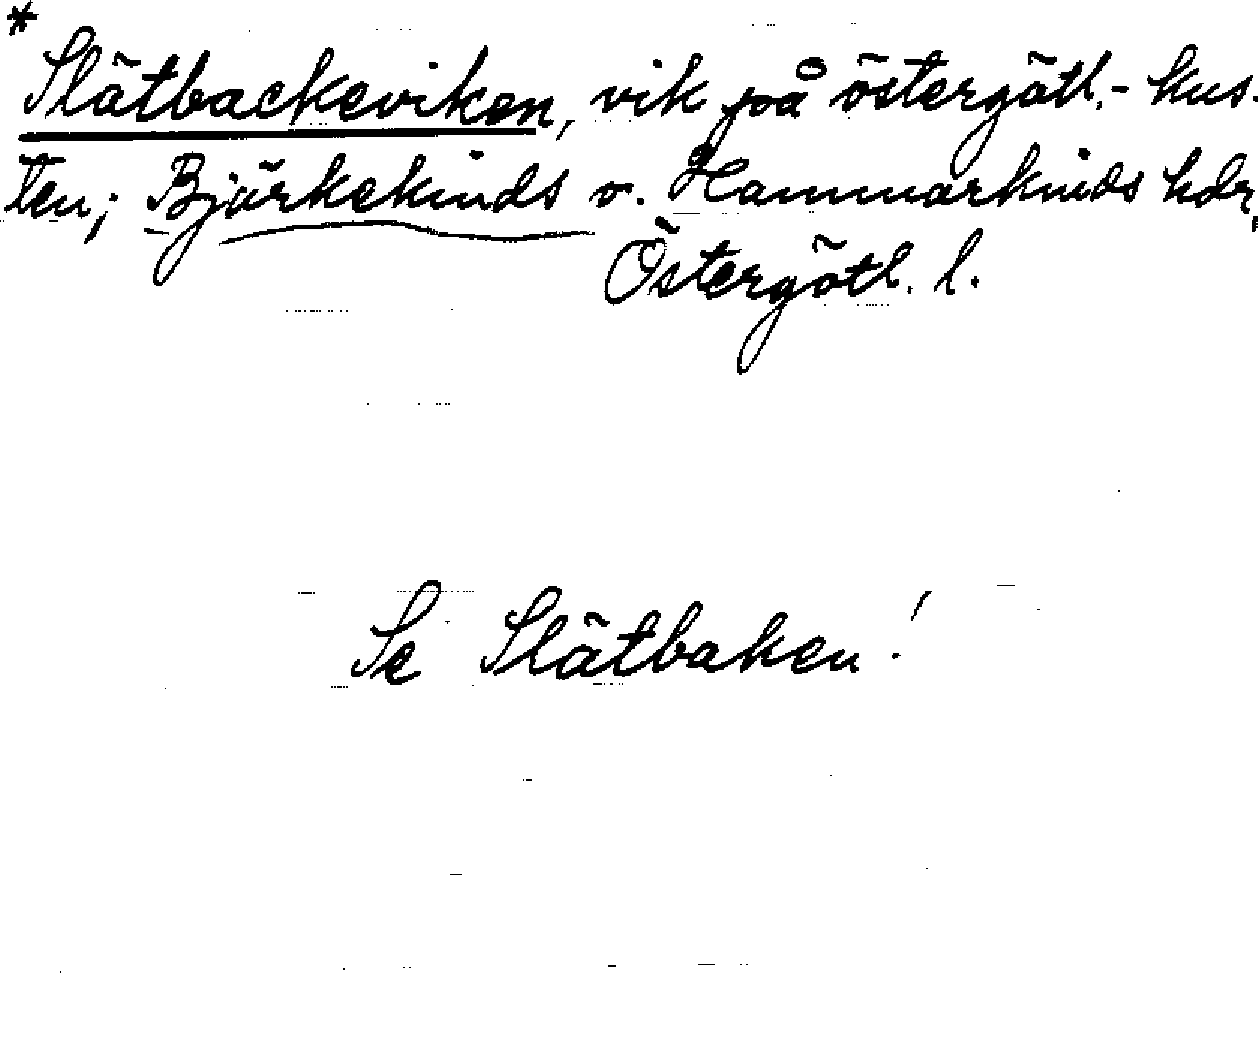 *
Slätbackeviken, vik på östergötl.- kus-
ten; Björkekinds o. Hammarkinds hdr,
Östergötl. l.
Se Slätbaken!